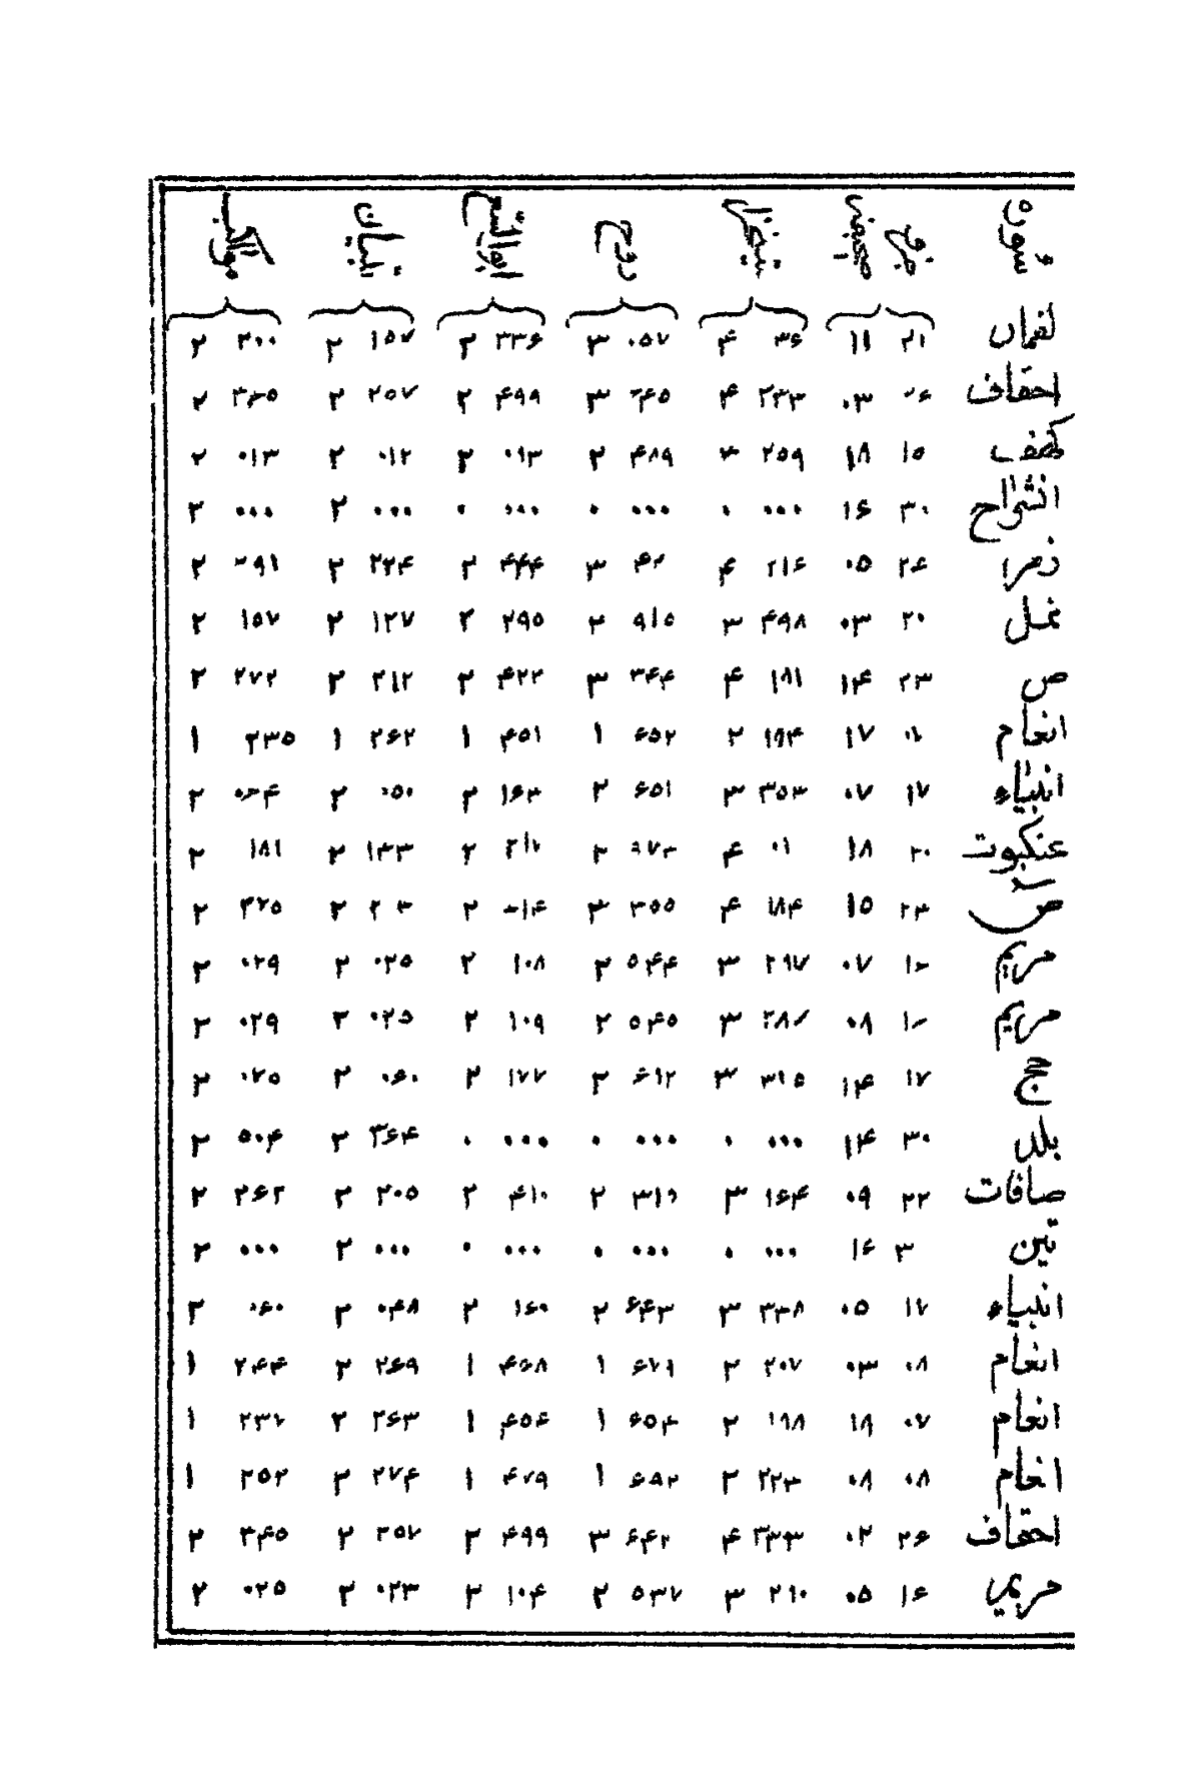 سوره جزو صحیفه شیخزاده روح ابوالسع تبیان مواکب
لقمان ۲۱ ۱۱ ۳۶ ۴ ۰۵۷ ۳ ۳۳۶ ۲ ۱۵۷ ۲ ۲۰۰ ۲
احقاف ۰۳ ۲۳۳ ۴ ۳ ۴۹۹ ۲ ۲۵۷ ۲ ۲
کهف ۱۵ ۱۸ ۲۵۹ ۴۸۹ ۲ ۰۹۳ ۲ ۰۱۲ ۲ ۰۱۳ ۲
انشراح ۳۰ ۱۶ ۰۰۰ ۰ ۰۰۰ ۰ ۰۰۰ ۰ ۰۰۰ ۲ ۰۰۰ ۲
زمر ۲۴ ۰۵ ۲۱۶ ۴ ۳ ۴۴۴ ۲ ۲۲۴ ۲ ۲
نمل ۲۰ ۰۳ ۴۹۸ ۳ ۹۱۵ ۲ ۲۹۵ ۲ ۱۲۷ ۲ ۱۵۷ ۲
ص ۲۳ ۱۴ ۱۸۱ ۴ ۳۴۴ ۳ ۴۲۲ ۲ ۲۱۲ ۲ ۲۷۲ ۲
انعام ۱۷ ۱۹۴ ۲ ۶۵۲ ۱ ۴۵۱ ۱ ۲۶۲ ۱ ۲۳۵ ۱
انبیاء ۱۷ ۰۷ ۳۵۳ ۳ ۶۵۱ ۲ ۱۶۳ ۲ ۰۵۰ ۲ ۲
عنکبوت ۲۰ ۱۸ ۰۱ ۴ ۹۷۳ ۲ ۲۱۷ ۲ ۱۳۳ ۲ ۱۸۱ ۲
ص ۲۳ ۱۵ ۱۸۴ ۴ ۳۵۵ ۳ ۲ ۲ ۲۷۵ ۲
مریم ۰۷ ۲۹۷ ۳ ۵۴۴ ۲ ۱۰۸ ۲ ۰۲۵ ۲ ۰۲۹ ۲
مریم ۰۸ ۳ ۵۴۵ ۲ ۱۰۹ ۲ ۰۲۵ ۲ ۰۲۹ ۲
حج ۱۷ ۱۴ ۳۱۵ ۳ ۶۱۲ ۲ ۱۷۷ ۲ ۰۶۰ ۲ ۰۷۵ ۲
بلد ۳۰ ۱۴ ۰۰۰ ۰ ۰۰۰ ۰ ۰۰۰ ۰ ۳۶۴ ۲ ۵۰۴ ۲
صافات ۲۲ ۰۹ ۱۶۴ ۳ ۲ ۴۱۰ ۲ ۲۰۵ ۲ ۲۶۲ ۲
تین ۳ ۱۶ ۰۰۰ ۰ ۰۰۰ ۰ ۰۰۰ ۰ ۰۰۰ ۲ ۰۰۰ ۲
انبیاء ۱۷ ۰۵ ۳۳۸ ۳ ۶۴۳ ۲ ۱۶۰ ۲ ۰۴۸ ۲ ۰۶۰ ۲
انعام ۰۸ ۰۳ ۲۰۷ ۲ ۶۷۱ ۱ ۴۶۸ ۱ ۲۶۹ ۲ ۲۴۴ ۱
انعام ۰۷ ۱۹ ۱۹۸ ۲ ۶۵۳ ۱ ۴۵۴ ۱ ۲۶۳ ۲ ۲۳۷ ۱
انعام ۰۸ ۰۸ ۲۲۳ ۲ ۶۸۲ ۱ ۴۷۹ ۱ ۲۷۴ ۲ ۲۵۲ ۱
احقاف ۲۶ ۰۲ ۳۳۳ ۴ ۶۴۲ ۳ ۴۹۹ ۲ ۲۵۷ ۲ ۳۴۵ ۲
مریم ۱۶ ۰۵ ۲۶۰ ۳ ۵۳۷ ۲ ۱۰۴ ۲ ۰۲۳ ۲ ۰۲۵ ۲